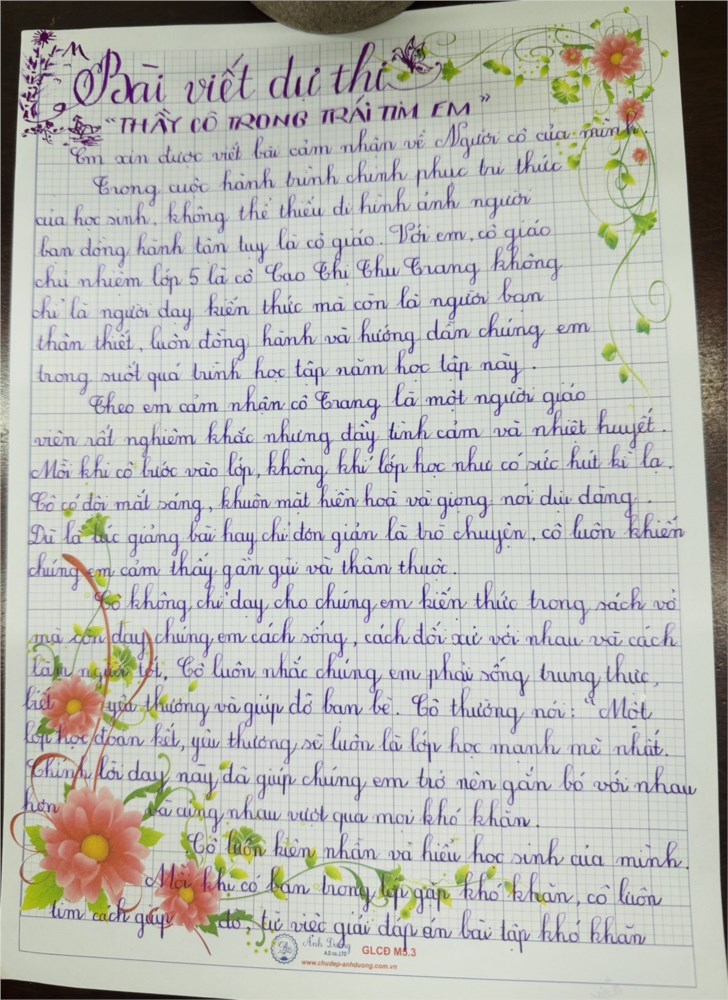 Bài viết dự thi
"THẦY CÔ TRONG TRÁI TIM EM"
Em xin được viết bài cảm nhận về Người cô của mình.
Trong cuộc hành trình chinh phục tri thức
của học sinh, không thể thiếu đi hình ảnh người
bạn đồng hành tận tụy là cô giáo. Với em, cô giáo
chủ nhiệm lớp 5 là cô Cao Thị Thu Trang không
chỉ là người dạy kiến thức mà còn là người bạn
thân thiết, luôn đồng hành và hướng dẫn chúng em
trong suốt quá trình học tập năm học tập này.
Theo em cảm nhận cô Trang là một người giáo
viên rất nghiêm khắc nhưng đầy tình cảm và nhiệt huyết.
Mỗi khi cô bước vào lớp, không khí lớp học như có sức hút kì lạ.
Cô có đôi mắt sáng, khuôn mặt hiền hoà và giọng nói dịu dàng.
Dù là lúc giảng bài hay chỉ đơn giản là trò chuyện, cô luôn khiến
chúng em cảm thấy gần gũi và thân thuộc.
Cô không chỉ dạy cho chúng em kiến thức trong sách vở
mà còn dạy chúng em cách sống, cách đối xử với nhau và cách
làm người tốt. Cô luôn nhắc chúng em phải sống trung thực,
biết yêu thương và giúp đỡ bạn bè. Cô thường nói: "Một
lớp học đoàn kết, yêu thương, sẽ luôn là lớp học mạnh mẽ nhất.
Chính lời dạy này đã giúp chúng em trở nên gắn bó với nhau
hơn và cùng nhau vượt qua mọi khó khăn.
Cô luôn kiên nhẫn và hiểu học sinh của mình.
Mỗi khi có bạn trong lớp gặp khó khăn, cô luôn
tìm cách giúp đỡ, từ việc giải đáp án bài tập khó khăn
Ánh Dương
A.D co.,LTD
GLCĐ M5.3
www.chudep-anhduong.com.vn